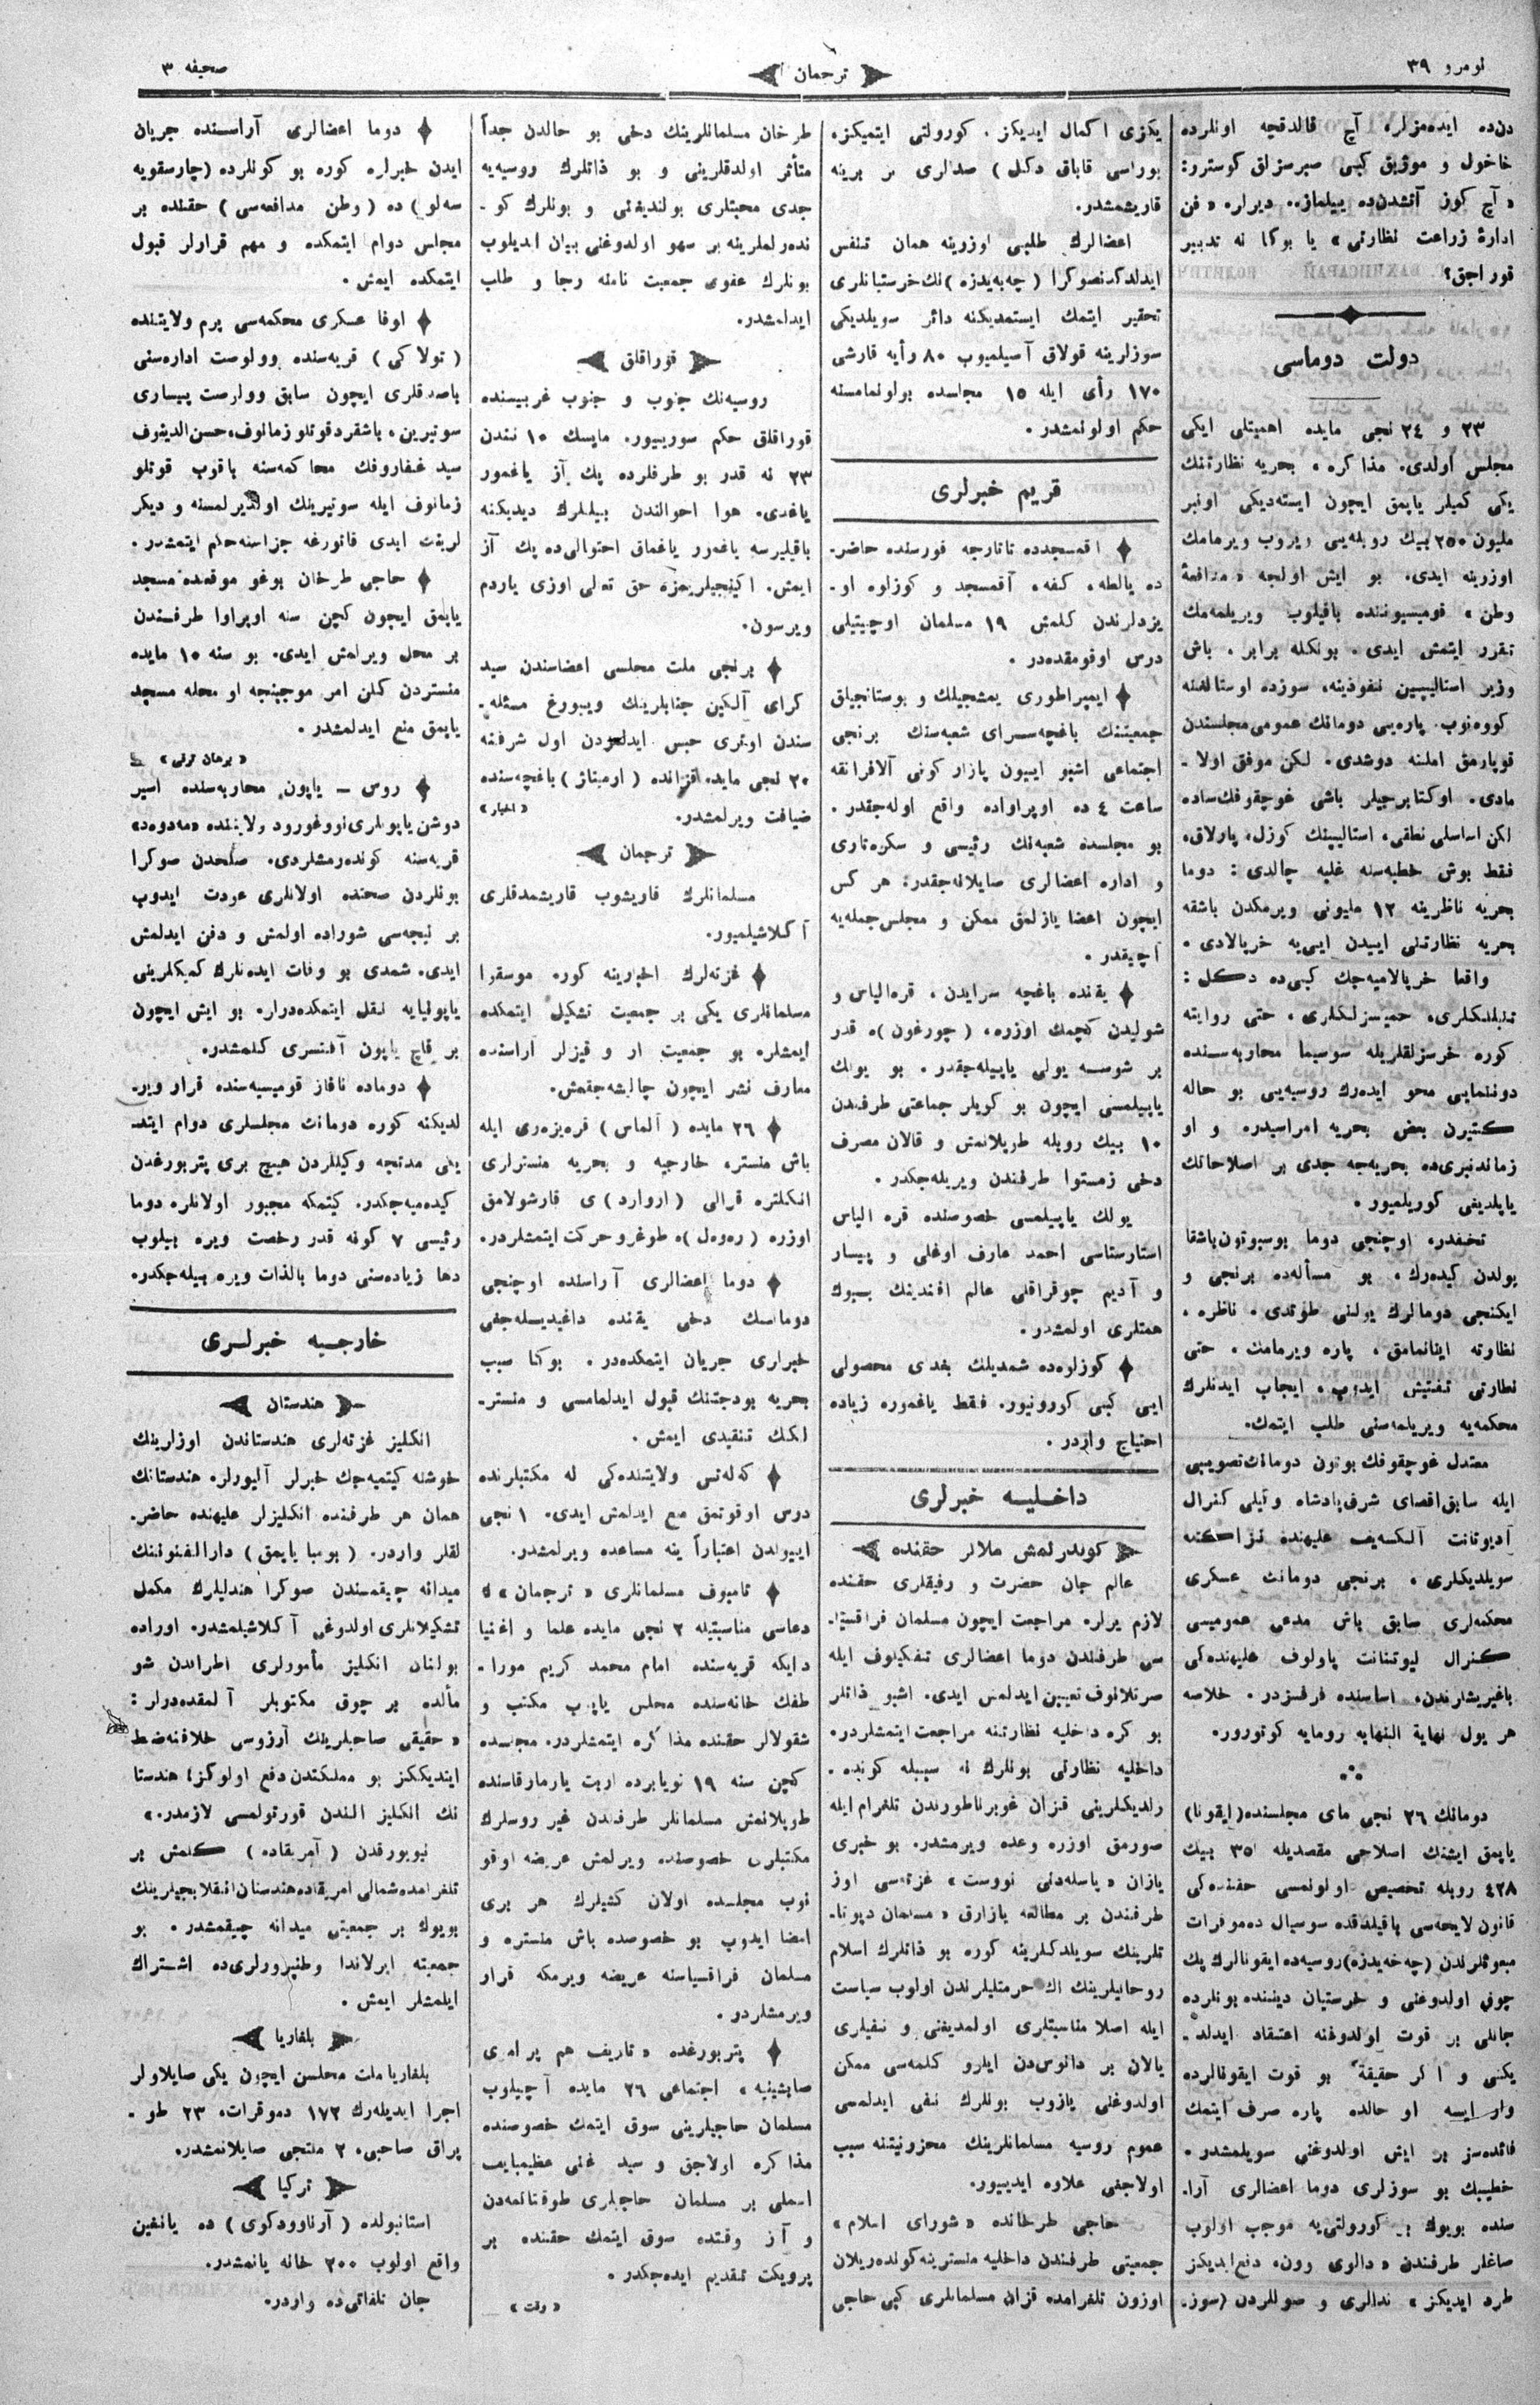 نومرو ٣٩
ترجمان
صحيفه ٣
دن‌ده ايده‌مزلر، آچ قالدقچه اونلرده
خاخول و موژيق كبى صبرسزلق كوسترو:
«آچ كوز آتشدن‌ده ييلماز.. ديرلر. «فن
ادارۀ زراعت نظارتى» يا بوكا نه تدبير
قوراجق؟
دولت دوماسى
٢٣ و ٢٤ نجى مايده اهميتلى ايكى
مجلس اولدى. مذاكره، بحريه نظارتنك
يكى كميلر ياپمق ايچون ايسته‌ديكى اونبر
مليون ٢٥٠ بيك روبله‌يى ويروب ويرمامك
اوزرينه ايدى. بو ايش اولجه «مدافعۀ
وطن» قوميسيوننده باقيلوب ويريلمه‌مك
تقرر ايتمش ايدى. بونكله برابر، باش
وزير استاليپين نفوذينه، سوزده اوستالغنه
كووه‌نوب پاره‌يى دومانك عمومى مجلسندن
قوپارمق املنه دوشدى. لكن موفق اولا-
مادى. اوكتابرجيلر باشى غوچقوفك ساده
لكن اساسلى نطقى، استاليپينك كوزل، پارلاق،
فقط بوش خطبه‌سنه غلبه چالدى: دوما
بحريه ناظرينه ١٢ مليونى ويرمكدن باشقه
بحريه نظارتنى اييدن ايى‌يه خرپالادى.
واقعا خرپالاميه‌جك كبى‌ده دكل:
تنبللكلرى، حميسزلكلرى، حتى روايته
كوره خرسزلقلريله سوسيما محاربه‌سنده
دوننمايى محو ايده‌رك روسيه‌يى بو حاله
كتيرن بعض بحريه امراسيدر، و او
زماندنبرى‌ده بحريه‌جه جدى بر اصلاحاتك
ياپلديغى كوريلميور.
تحفدر، اوچنجى دوما بوسبوتون باشقا
يولدن كيده‌رك، بو مسأله‌ده برنجى و
ايكنجى دومالرك يولنى طوتدى. ناظره،
نظارته اينانمامق، پاره ويرمامك، حتى
نظارتى تفتيش ايدوب، ايجاب ايدنلرك
محكمه‌يه ويريلمه‌سنى طلب ايتمك.
معتدل غوچقوفك بوتون دومانك تصويبى
ايله سابق اقصاى شرق پادشاه وكيلى كنرال
آديوتانت آلكسه‌يف عليهنده نزاكتله
سويلديكلرى، برنجى دومانك عسكرى
محكمه‌لرى سابق باش مدعى عموميسى
كنرال ليوتنانت پاولوف عليهنده‌كى
باغيريشارندن، اساسنده فرقسزدر. خلاصه
هر يول نهاية النهايه رومايه كوتورور.
دومانك ٢٦ نجى ماى مجلسنده (ايقونا)
ياپمق ايشنك اصلاحى مقصديله ٣٥ بيك
٤٢٨ روبله تخصيص اولونمسى حقنده‌كى
قانون لايحه‌سى باقيلدقده سوسيال ده‌موقرات
مبعوثلرندن (چه‌خه‌يدزه) روسيه‌ده ايقونالرك پك
چوق اولدوغنى و خرستيان ديننده بونلرده
جانلى بر قوت اولدوغنه اعتقاد ايدلد-
يكنى و اكر حقيقةً بو قوت ايقونالرده
وار ايسه او حالده پاره صرف ايتمك
فائده‌سز بر ايش اولدوغنى سويلمشدر.
خطيبك بو سوزلرى دوما اعضالرى آرا-
سنده بويوك بر كورولتى‌يه موجب اولوب
صاغلر طرفندن «دالوى وون» دفع ايديكز
طرد ايديكز» ندالرى و صوللردن (سوز-
يكزى اكمال ايديكز، كورولتى ايتميكز،
بوراسى قاباق دكل) صدالرى بر برينه
قاريشمشدر.
اعضالرك طلبى اوزرينه همان تنفس
ايدلدكدنصوكرا (چه‌به‌يدزه) نك خرستيانلرى
تحقير ايتمك ايستمديكنه دائر سويلديكى
سوزلرينه قولاق آسيلميوب ٨٠ رأيه قارشى
١٧٠ رأى ايله ١٥ مجلسده بولونمامسنه
حكم اولونمشدر.
قريم خبرلرى
اقمسجدده تاتارجه قورسنده حاضر-
ده يالطه، كفه، آقمسجد و كوزلوه او-
يزدلرندن كلمش ١٩ مسلمان اوچيتيلى
درس اوقومقده‌در.
ايمپراطورى يمشجيلك و بوستانجيلق
جمعيتنك باغچه‌سراى شعبه‌سنك برنجى
اجتماعى اشبو اييون پازار كونى آلافرانقه
ساعت ٤ ده اوپراواده واقع اوله‌جقدر.
بو مجلسده شعبه‌نك رئيسى و سكره‌تارى
و اداره اعضالرى صايلانه‌جقدر: هر كس
ايچون اعضا يازلمق ممكن و مجلس جمله‌يه
آچيقدر.
يقنده باغچه سرايدن، قره‌الياس و
شوليدن كچمك اوزره، (چورغون)ه قدر
بر شوسه يولى ياپيله‌جقدر. بو يولك
ياپيلمسى ايچون بو كويلر جماعتى طرفندن
١٠ بيك روبله طوپلانمش و قالان مصرف
دخى زمستوا طرفندن ويريله‌جكدر.
يولك ياپيلمسى خصوصنده قره الياس
استارستاسى احمد عارف اوغلى و پيسار
و آديم چوقراقلى عالم افندينك بيوك
همتلرى اولمشدر.
كوزلوه‌ده شمديلك بغدى محصولى
ايى كبى كورونيور. فقط ياغموره زياده
احتياج واردر.
داخليه خبرلرى
كوندرلمش ملالر حقنده
عالم جان حضرت و رفيقلرى حقنده
لازم يرلره مراجعت ايچون مسلمان فراقسيا-
سى طرفندن دوما اعضالرى تنفكيلوف ايله
صرتلانوف تعيين ايدلمش ايدى. اشبو ذاتلر
بو كره داخليه نظارتنه مراجعت ايتمشلردر.
داخليه نظارتى بونلرك نه سببله كونده-
رلديكلرينى قزان غوبرناطورندن تلغرام ايله
صورمق اوزره وعده ويرمشدر. بو خبرى
يازان «ياسله‌دنى نووست» غزته‌سى اوز
طرفندن بر مطالعه يازارق «مسلمان دپوتا-
تلرينك سويلدكلرينه كوره بو ذاتلرك اسلام
روحانيلرينك اك حرمتليلرندن اولوب سياست
ايله اصلا مناسبتلرى اولمديغنى و نفيلرى
يالان بر دانوس‌دن ايلرو كلمه‌سى ممكن
اولدوغنى يازوب بونلرك نفى ايدلمسى
عموم روسيه مسلمانلرينك محزونيتنه سبب
اولاجغنى علاوه ايدييور.
حاجى طرخانده «شوراى اسلام»
جمعيتى طرفندن داخليه منسترينه كوندەريلان
اوزون تلغرامده قزان مسلمانلرى كبى حاجى
طرخان مسلمانلرينك دخى بو حالدن جداً
متأثر اولدقلرينى و بو ذاتلرك روسيه‌يه
جدى محبتلرى بولنديغنى و بونلرك كو-
نده‌رلملرينه بر سهو اولدوغنى بيان ايديلوب
بونلرك عفوى جمعيت نامنه رجا و طلب
ايدلمشدر.
قوراقلق
روسيه‌نك جنوب و جنوب غربيسنده
قوراقلق حكم سورييور. مايسك ١٠ نندن
٢٣ نه قدر بو طرفلرده پك آز ياغمور
ياغدى. هوا احوالندن بيللرك ديديكنه
باقيلیرسه ياغمور ياغماق احتوالى‌ده پك آز
ايمش. اكينجيلريمزه حق تعلى اوزى ياردم
ويرسون.
برنجى ملت مجلسى اعضاسندن سيد
كراى آلكين جنابلرينك ويبورغ مسئله-
سندن اوترى حبس ايدلمودن اول شرفنه
٢٠ نجى مايده قزانده (ارميتاژ) باغچه‌سنده
ضيافت ويرلمشدر. «اخبار»
ترجمان
مسلمانلرك قاريشوب قاريشمدقلرى
آكلاشيلميور.
غزته‌لرك اخبارينه كوره موسقوا
مسلمانلرى يكى بر جمعيت تشكيل ايتمكده
ايمشلر. بو جمعيت ار و قيزلر آراسنده
معارف نشر ايچون چاليشه‌جقمش.
٢٦ مايده (آلماس) قره‌يزەرى ايله
باش منستر، خارجيه و بحريه منسترلرى
انكلتره قرالى (ادوارد) ى قارشولامق
اوزره (ره‌وه‌ل)ه طوغرو حركت ايتمشلردر.
دوما اعضالرى آراسنده اوچنجى
دومانك دخى يقنده داغيديله‌جغى
خبرلرى جريان ايتمكده‌در. بوكا سبب
بحريه بودجتنك قبول ايدلمامسى و منستر-
لكك تنقيدى ايمش.
كه‌له‌تس ولايتنده‌كى له مكتبلرنده
درس اوقوتمق منع ايدلمش ايدى. ١ نجى
اييولدن اعتباراً ينه مساعده ويرلمشدر.
تامبوف مسلمانلرى «ترجمان» ك
دعاسى مناسبتيله ٢ نجى مايده علما و اغنيا
دايكه قريه‌سنده امام محمد كريم مورا-
طفك خانه‌سنده مجلس ياپوب مكتب و
شقولالر حقنده مذاكره ايتمشلردر. مجلسده
كچن سنه ١٩ نويابرده اربت يارمارقاسنده
طوپلانمش مسلمانلر طرفندن غير روسلرك
مكتبلرى خصوصنده ويرلمش عريضه اوقو
نوب مجلسده اولان كشيلرك هر برى
امضا ايدوب بو خصوصده باش منستره و
مسلمان فراقسياسنه عريضه ويرمكه قرار
ويرمشلردر.
پتربورغده «تاريف هم پرامى
صابشينيه» اجتماعى ٢٦ مايده آچيلوب
مسلمان حاجيلرينى سوق ايتمك خصوصنده
مذاكره اولاجق و سيد غنى عظيمبايف
اسملى بر مسلمان حاجيلرى طوقتالمه‌دن
و آز وقتده سوق ايتمك حقنده بر
پرويكت تقديم ايده‌جكدر.
«وقت»
دوما اعضالرى آراسنده جريان
ايدن خبرلره كوره بو كونلرده (چارسقويه
سه‌لو) ده (وطن مدافعه‌سى) حقنده بر
مجلس دوام ايتمكده و مهم قرارلر قبول
ايتمكده ايمش.
اوفا عسكرى محكمه‌سى پرم ولايتنده
(تولاكى) قريه‌سنده وولوست اداره‌سنى
باصدقلرى ايچون سابق وولوست پيسارى
سوتيرين، باشقرد قوتلو زمانوف، حسن الدينوف
سيد غفاروفك محاكمه‌سنه باقوب قوتلو
زمانوف ايله سوتيرينك اولديرلمسنه و ديكر
لرينك ابدى قاتورغه جزاسنه حكم ايتمشدر.
حاجى طرخان بوغو موقعنده مسجد
ياپمق ايچون كچن سنه اوپراوا طرفندن
بر محل ويرلمش ايدى. بو سنه ١٥ مايده
منستردن كلن امر موجبنجه او محله مسجد
ياپمق منع ايدلمشدر.
«برهان ترقى»
روس – ياپون محاربه‌سنده اسير
دوشن ياپونلرى نووغورود ولايتنده «مه‌دوه‌د»
قريه‌سنه كوندەرمشلردى. صلحدن صوكرا
بونلردن صحتده اولانلرى عودت ايدوپ
بر نيجه‌سى شوراده اولمش و دفن ايدلمش
ايدى. شمدى بو وفات ايدنلرك كميكلرينى
ياپونيايه نقل ايتمكده‌درلر. بو ايش ايچون
بر قاچ ياپون آفتسرى كلمشدر.
دوماده ناقاز قوميسيه‌سنده قرار وير-
لديكنه كوره دومانك مجلسلرى دوام ايتد-
يكى مدتجه وكيللردن هيچ برى پتربورغدن
كيده‌ميه‌جكدر. كيتمكه مجبور اولانلره دوما
رئيسى ٧ كونه قدر رخصت ويره بيلوب
دها زياده‌سنى دوما بالذات ويره بيله‌جكدر.
خارجيه خبرلرى
هندستان
انكليز غزته‌لرى هندستاندن اوزلرينك
خوشنه كيتميه‌جك خبرلر آليورلر. هندستانك
همان هر طرفنده انكليزلر عليهنده حاضر-
لقلر واردر. (بومبا ياپمق) دارالفنوننك
ميدانه چيقمسندن صوكرا هندليلرك مكمل
تشكيلاتلرى اولدوغى آكلاشيلمشدر. اوراده
بولنان انكليز مأمورلرى اطراندن شو
مألده بر چوق مكتوبلر آلمقده‌درلر:
«حقيقى صاحبلرينك آرزوسى خلافنه ضبط
ايتديككز بو مملكتدن دفع اولوكز؛ هندستا
نك انكليز الندن قورتولمسى لازمدر.»
نيويورقدن (آمريقاده) كلمش بر
تلغرامده شمالى امريقاده هندستان انقلابجيلرينك
بويوك بر جمعيتى ميدانه چيقمشدر. بو
جمعيته ايرلاندا وطنپرورلرى‌ده اشتراك
ايلمشلر ايمش.
بلغاريا
بلغاريا ملت مجلسن ايچون يكى صايلاولر
اجرا ايديله‌رك ١٧٢ دموقرات، ٢٣ طو-
پراق صاحبى، ٢ ملتجى صايلانمشدر.
تركيا
استانبولده (آرناوودكوى) ده يانغين
واقع اولوب ٢٠٠ خانه يانمشدر.
جان تلفاتى‌ده واردر.